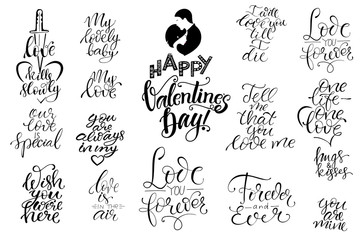 love
kills
slowly
our
love
special
Wish
you
were
here
My
lovely
baby
My
love
you are
always
in my
love
is
IN THE
air
HAPPY
Valentines
Day!
Love
YOU
forever
I will
love you
till
I die
Tell
me that
you
love me
Forever
and
Ever
Love
YOU
forever
one
life
one
love
hugs
&
kisses
you
are mine